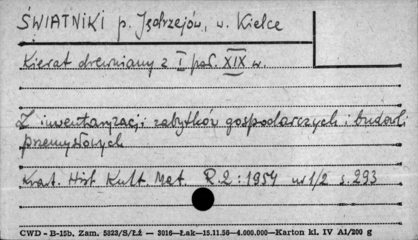 ŚWIATNIKI p. Jędrzejów, w. Kielce
Kierat drewniany z I poł. XIX w.
Z inwentaryzacji zabytków gospodarczych i budowli
przemysłowych
Kwat. Hist. Kult. Mat. R.2:1954 nr 1/2 s.293
CWD - B-15b. Zam. 5823/S/Łż — 3016—Łak—15.11.56—4.000.000—Karton kl. IV A1/200 g